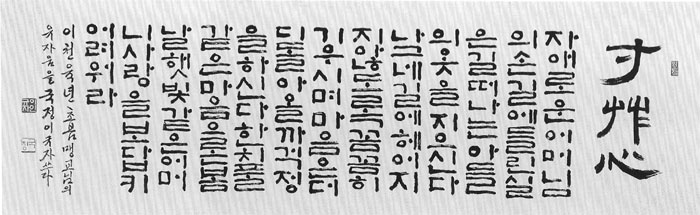 寸艸心
자애로운어머님
의손길에들린실
은길떠나는아들
의옷을지으신다
길에해어지
지않도록꼼꼼히
기우시며마음은더
디돌아올까걱정
을하신다한치풀
같은마음으로봄
날햇빛같은어머
니사랑을보답키
어려우라
이천육년 초봄 맹교님의
유자음을 국정이국자쓰다